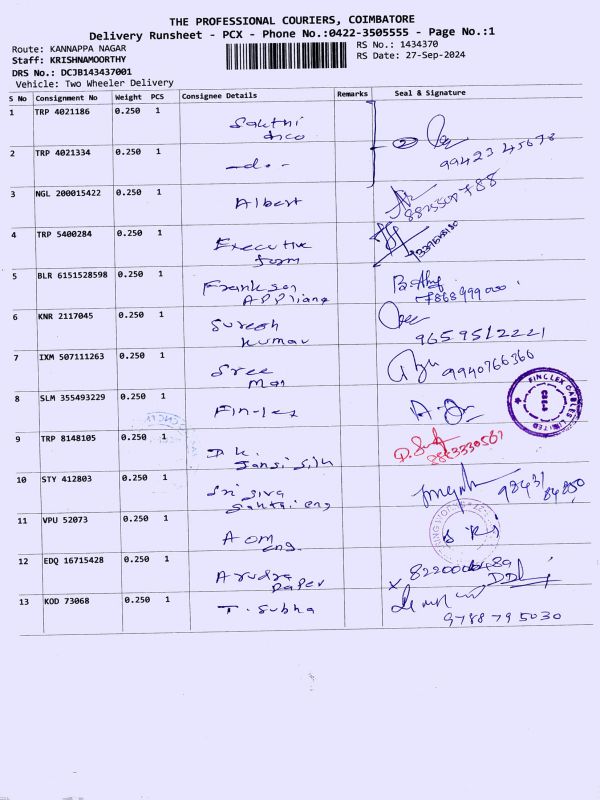 THE PROFESSIONAL COURIERS, COIMBATORE
Delivery Runsheet - PCX - Phone No.:0422-3505555 - Page No.:1
Route: KANNAPPA NAGAR
RS No.: 1434370
Staff: KRISHNAMOORTHY
RS Date: 27-Sep-2024
DRS No.: DCJB143437001
Vehicle: Two Wheeler Delivery
S No Consignment No Weight PCS Consignee Details Remarks Seal & Signature
1 TRP 4021186 0.250 1 Sakthi
2 TRP 4021334 0.250 1 -do- 2 99423 45678
3 NGL 200015422 0.250 1 Albert
4 TRP 5400284 0.250 1 Executive
form
5 BLR 6151528598 0.250 1 Frankson
7868999000
6 KNR 2117045 0.250 1 Suresh
Kumar 9659512221
7 IXM 507111263 0.250 1 Sree
9940766366
8 SLM 355493229 0.250 1 Fin-lex
FINOLEX CABLES LIMITED
9 TRP 8148105 0.250 1 D.K.
Jansi silk
10 STY 412803 0.250 1 Sri Siva
Sakthi eng
11 VPU 52073 0.250 1 A om
eng.
12 EDQ 16715428 0.250 1 Arudra
Paper
13 KOD 73068 0.250 1 T. Subha
9788795030